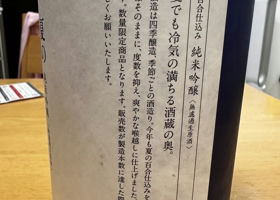 百合仕込み 純米吟醸〈無濾過生原酒〉
でも冷気の満ちる酒蔵の奥。
造は四季醸造。季節ごとの酒造り。今年も夏の百合仕込みを
そのままに、度数を抑え、爽やかな喉越しに仕上げました。
。数量限定商品となります。販売数が製造本数に達した
しくお願いいたします。
蔵の